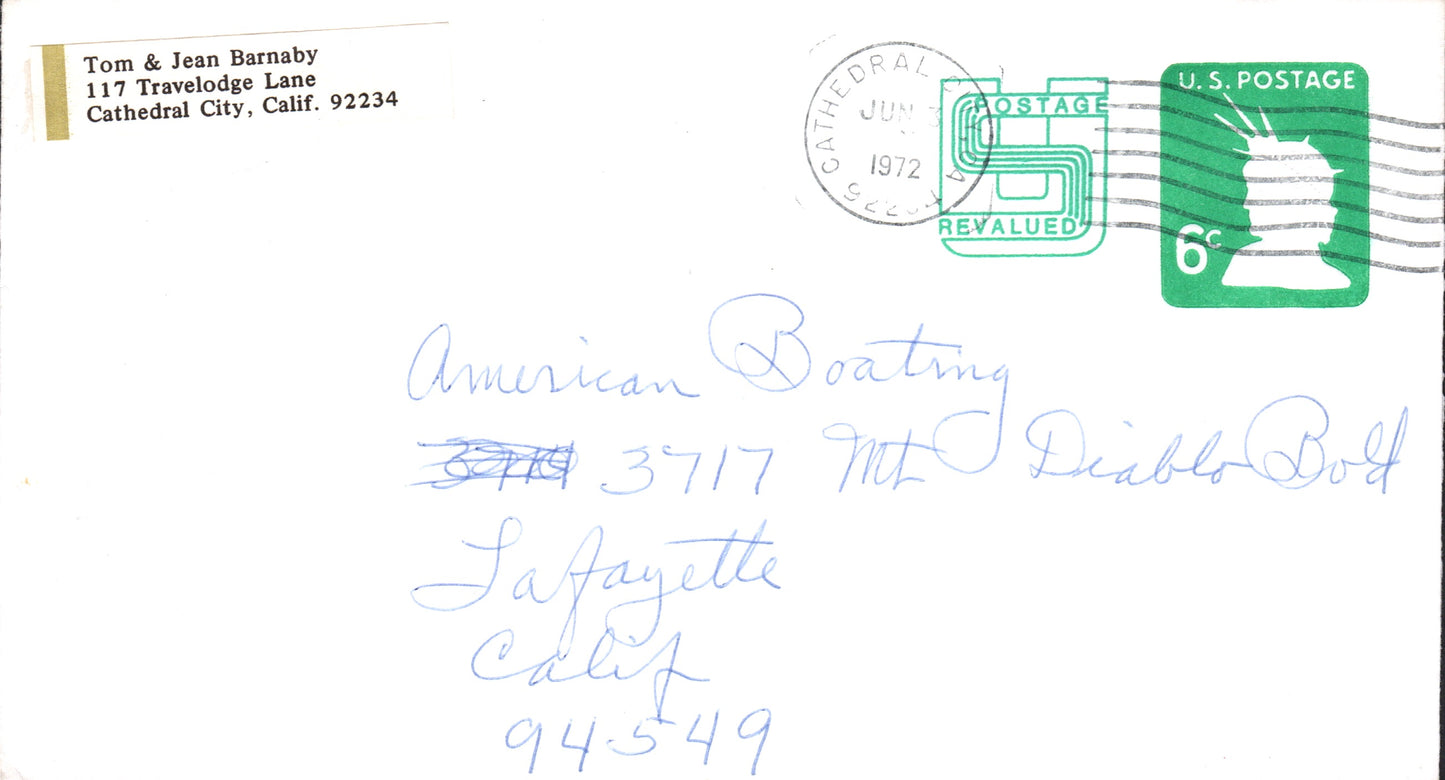 Tom & Jean Barnaby
117 Travelodge Lane
Cathedral City, Calif. 92234
CATHEDRAL CITY, CA
JUN 3
1972
POSTAGE
REVALUED
U.S. POSTAGE
6c
American Boating
3717 Mt Diablo Bold
Lafayette
Calif
94549